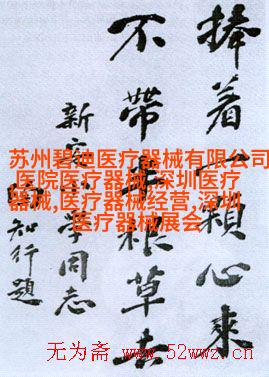 捧着一顆心來
不帶半根草去
新安小學同志
陶知行題
苏州碧迪医疗器械有限公司
,医院医疗器械,深圳医疗
器械,医疗器械经营,深圳
医疗器械展会
无为斋 www.52wwz.cn